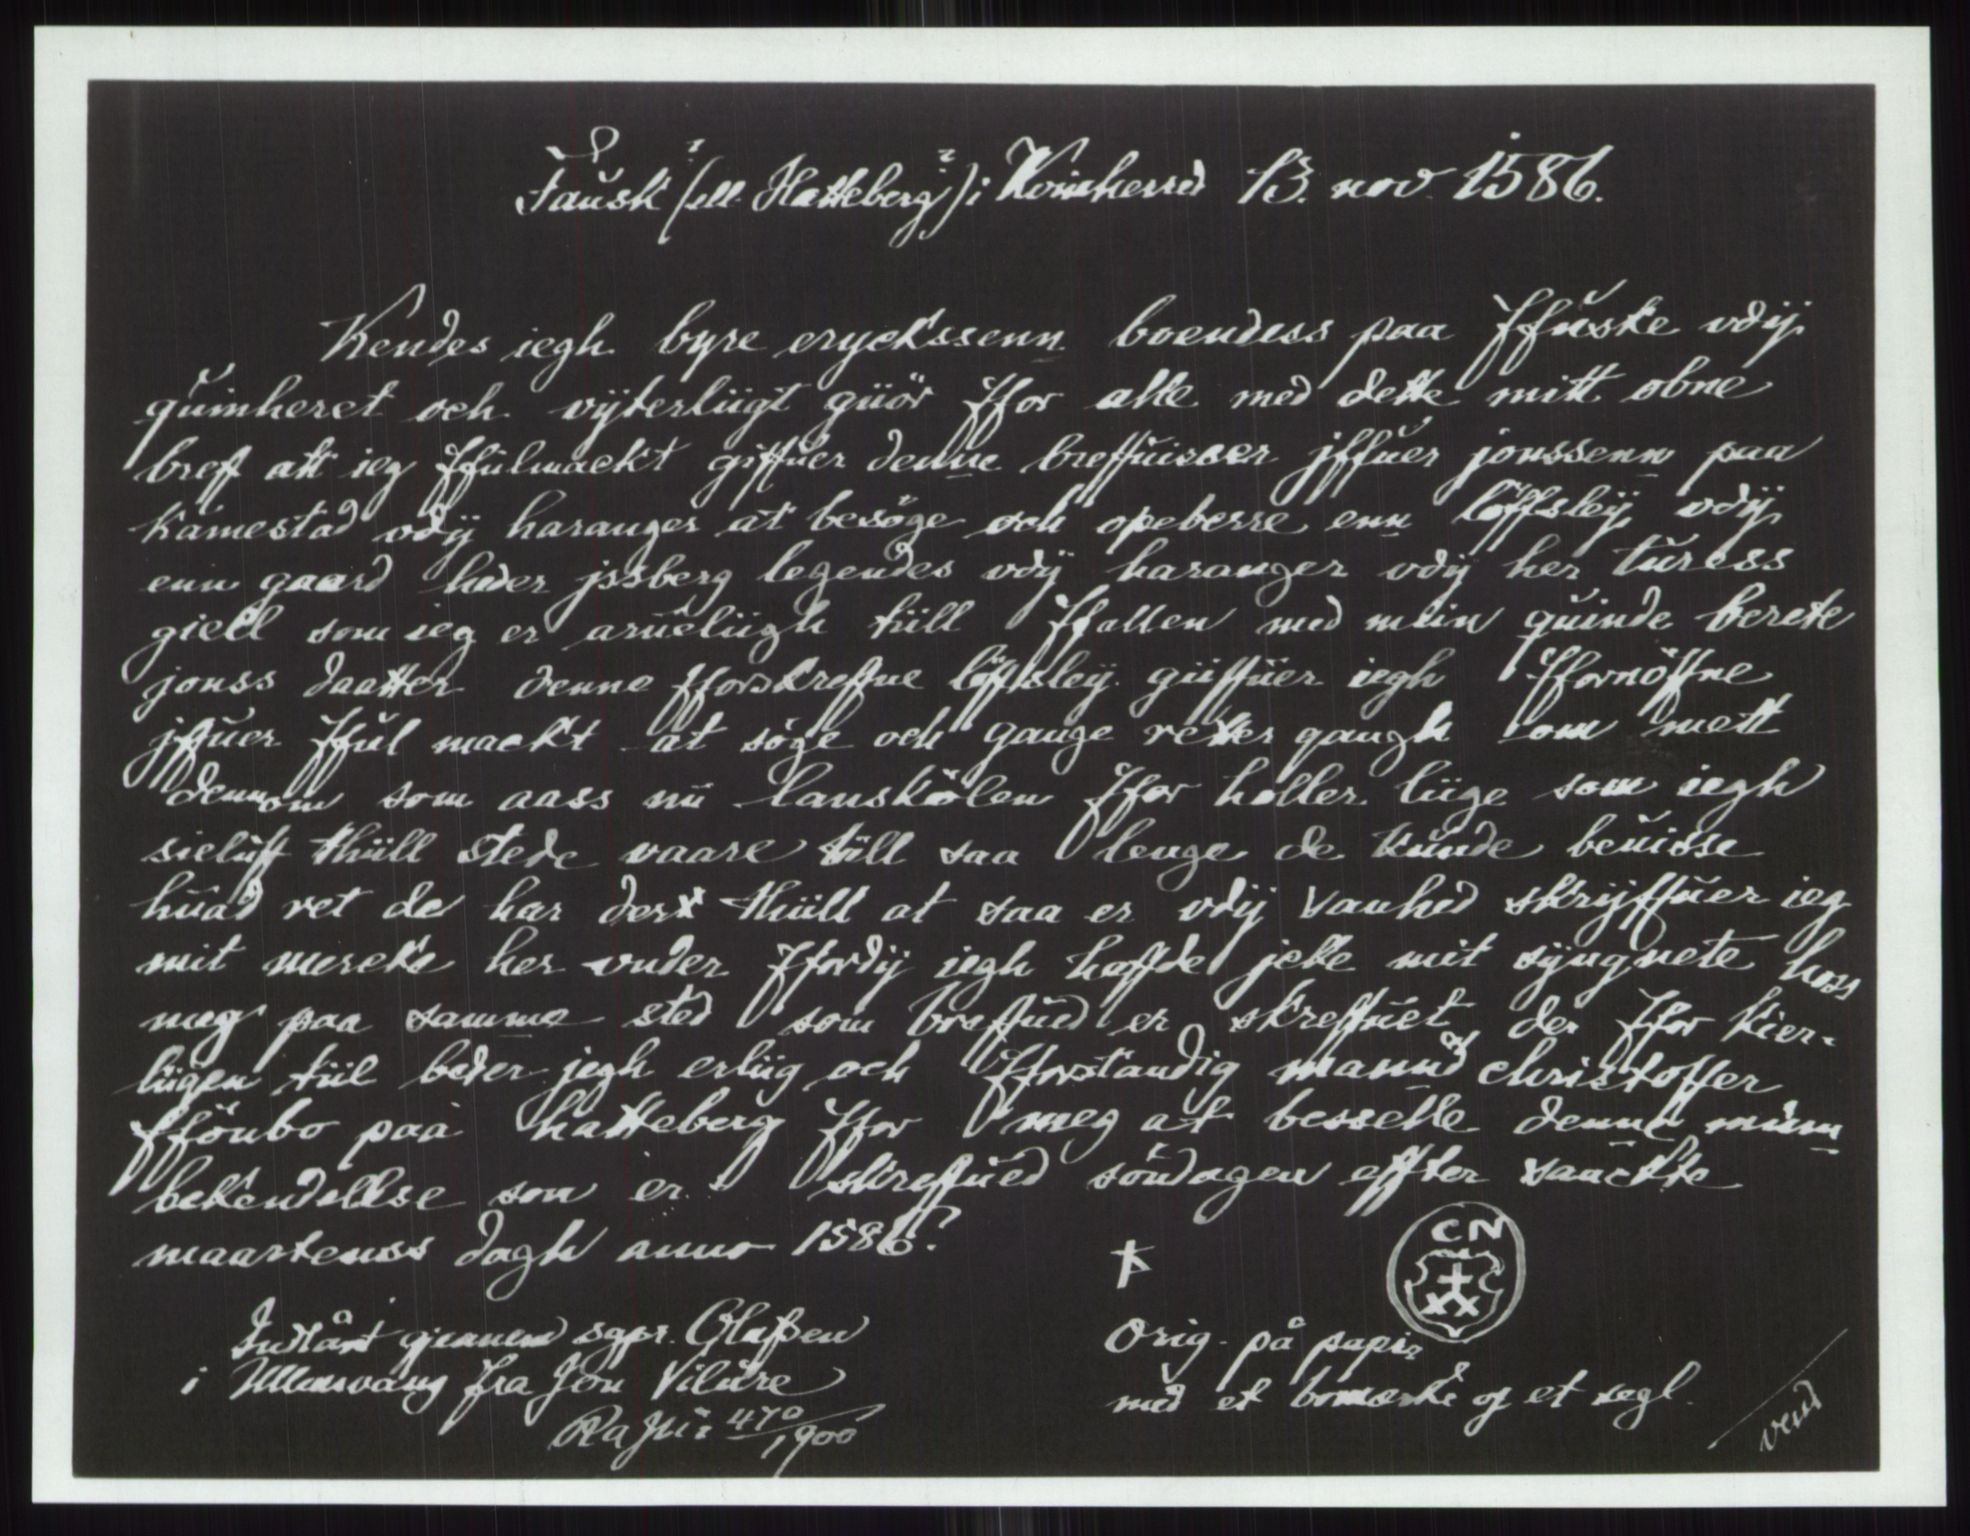 Fausk? (ell. Hatteberg?) i Kvinherred 13. nov. 1586.
Kendes iegh byre eryckssenn boendess paa ffuske vdÿ
quinheret och vÿterliigt giiör ffor alle med dette mitt obne
breff att ieg ffulmackt giffuer denne breffuisser jffuer jonssenn paa
Kamestad vdÿ haranger at besöge och opeberre enn löffsleÿ vdÿ
enn gaard heder jssberg legendes vdÿ haranger vdÿ her turess
giell som ieg er arueliigh tiill ffallen med miin quinde berete
jonss daatter denne fforskreffne löffsleÿ giiffuer iegh ffornöffne
jffuer fful mackt at söge och gange retter gangh om mett
dennom som aass nu lanskölen ffor holler liige som iegh
sieluff thiill stede vaare tiill saa lenge de kunde beuisse
huad ret de har der thiill at saa er vdÿ sanhed skrÿffuer ieg
mit mercke her vnder ffordÿ iegh haffde jcke mit sÿngnete hoss
meg paa samme sted som breffued er skreffuet der ffor kier-
liigen tiil beder jegh erliig och fforstandig mannd christoffer
ffönbo paa hatteberg ffor meg at besselle denne miinn
bekendellse som er skreffued söndagen effter sanckte
maartenss dagh anno 1586.
CN
Indlånt gjennem sgpr. Olafsen
i Ullensvang fra Jon Vilure
RaJnr 470/1900
Orig. på papir
med et bomærke og et segl.
vend